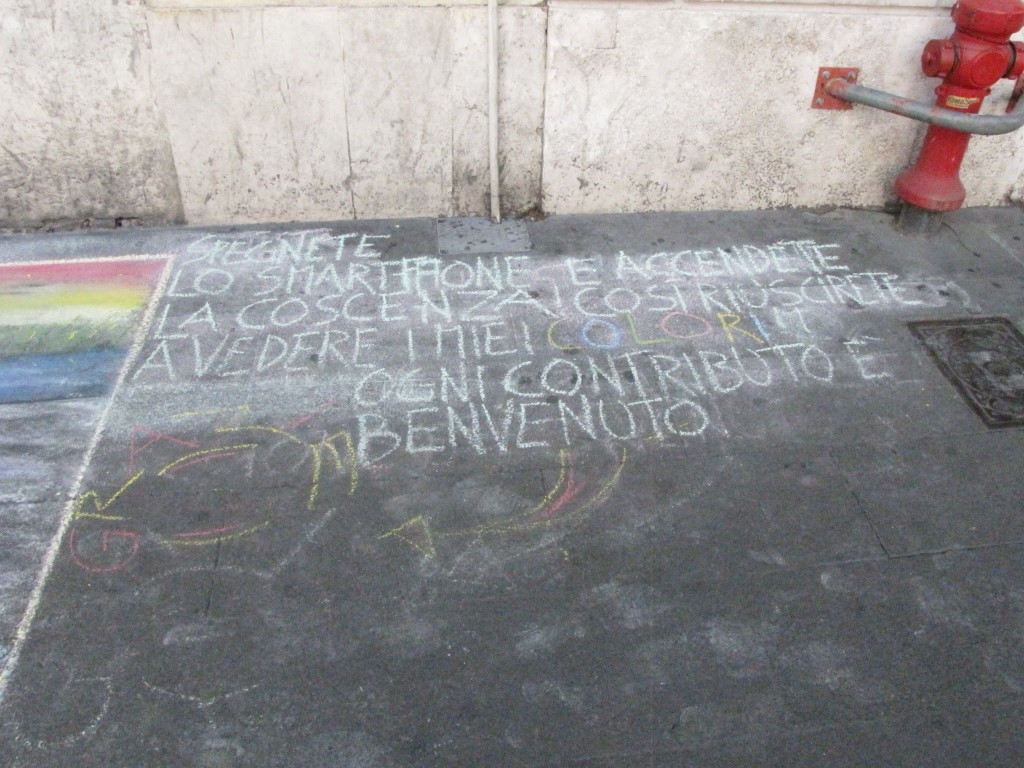 SPEGNETE
LO SMARTPHONE E ACCENDETE
LA COSCENZA! COSI RIUSCIRETE
A VEDERE I MIEI COLORI
OGNI CONTRIBUTO È
BENVENUTO